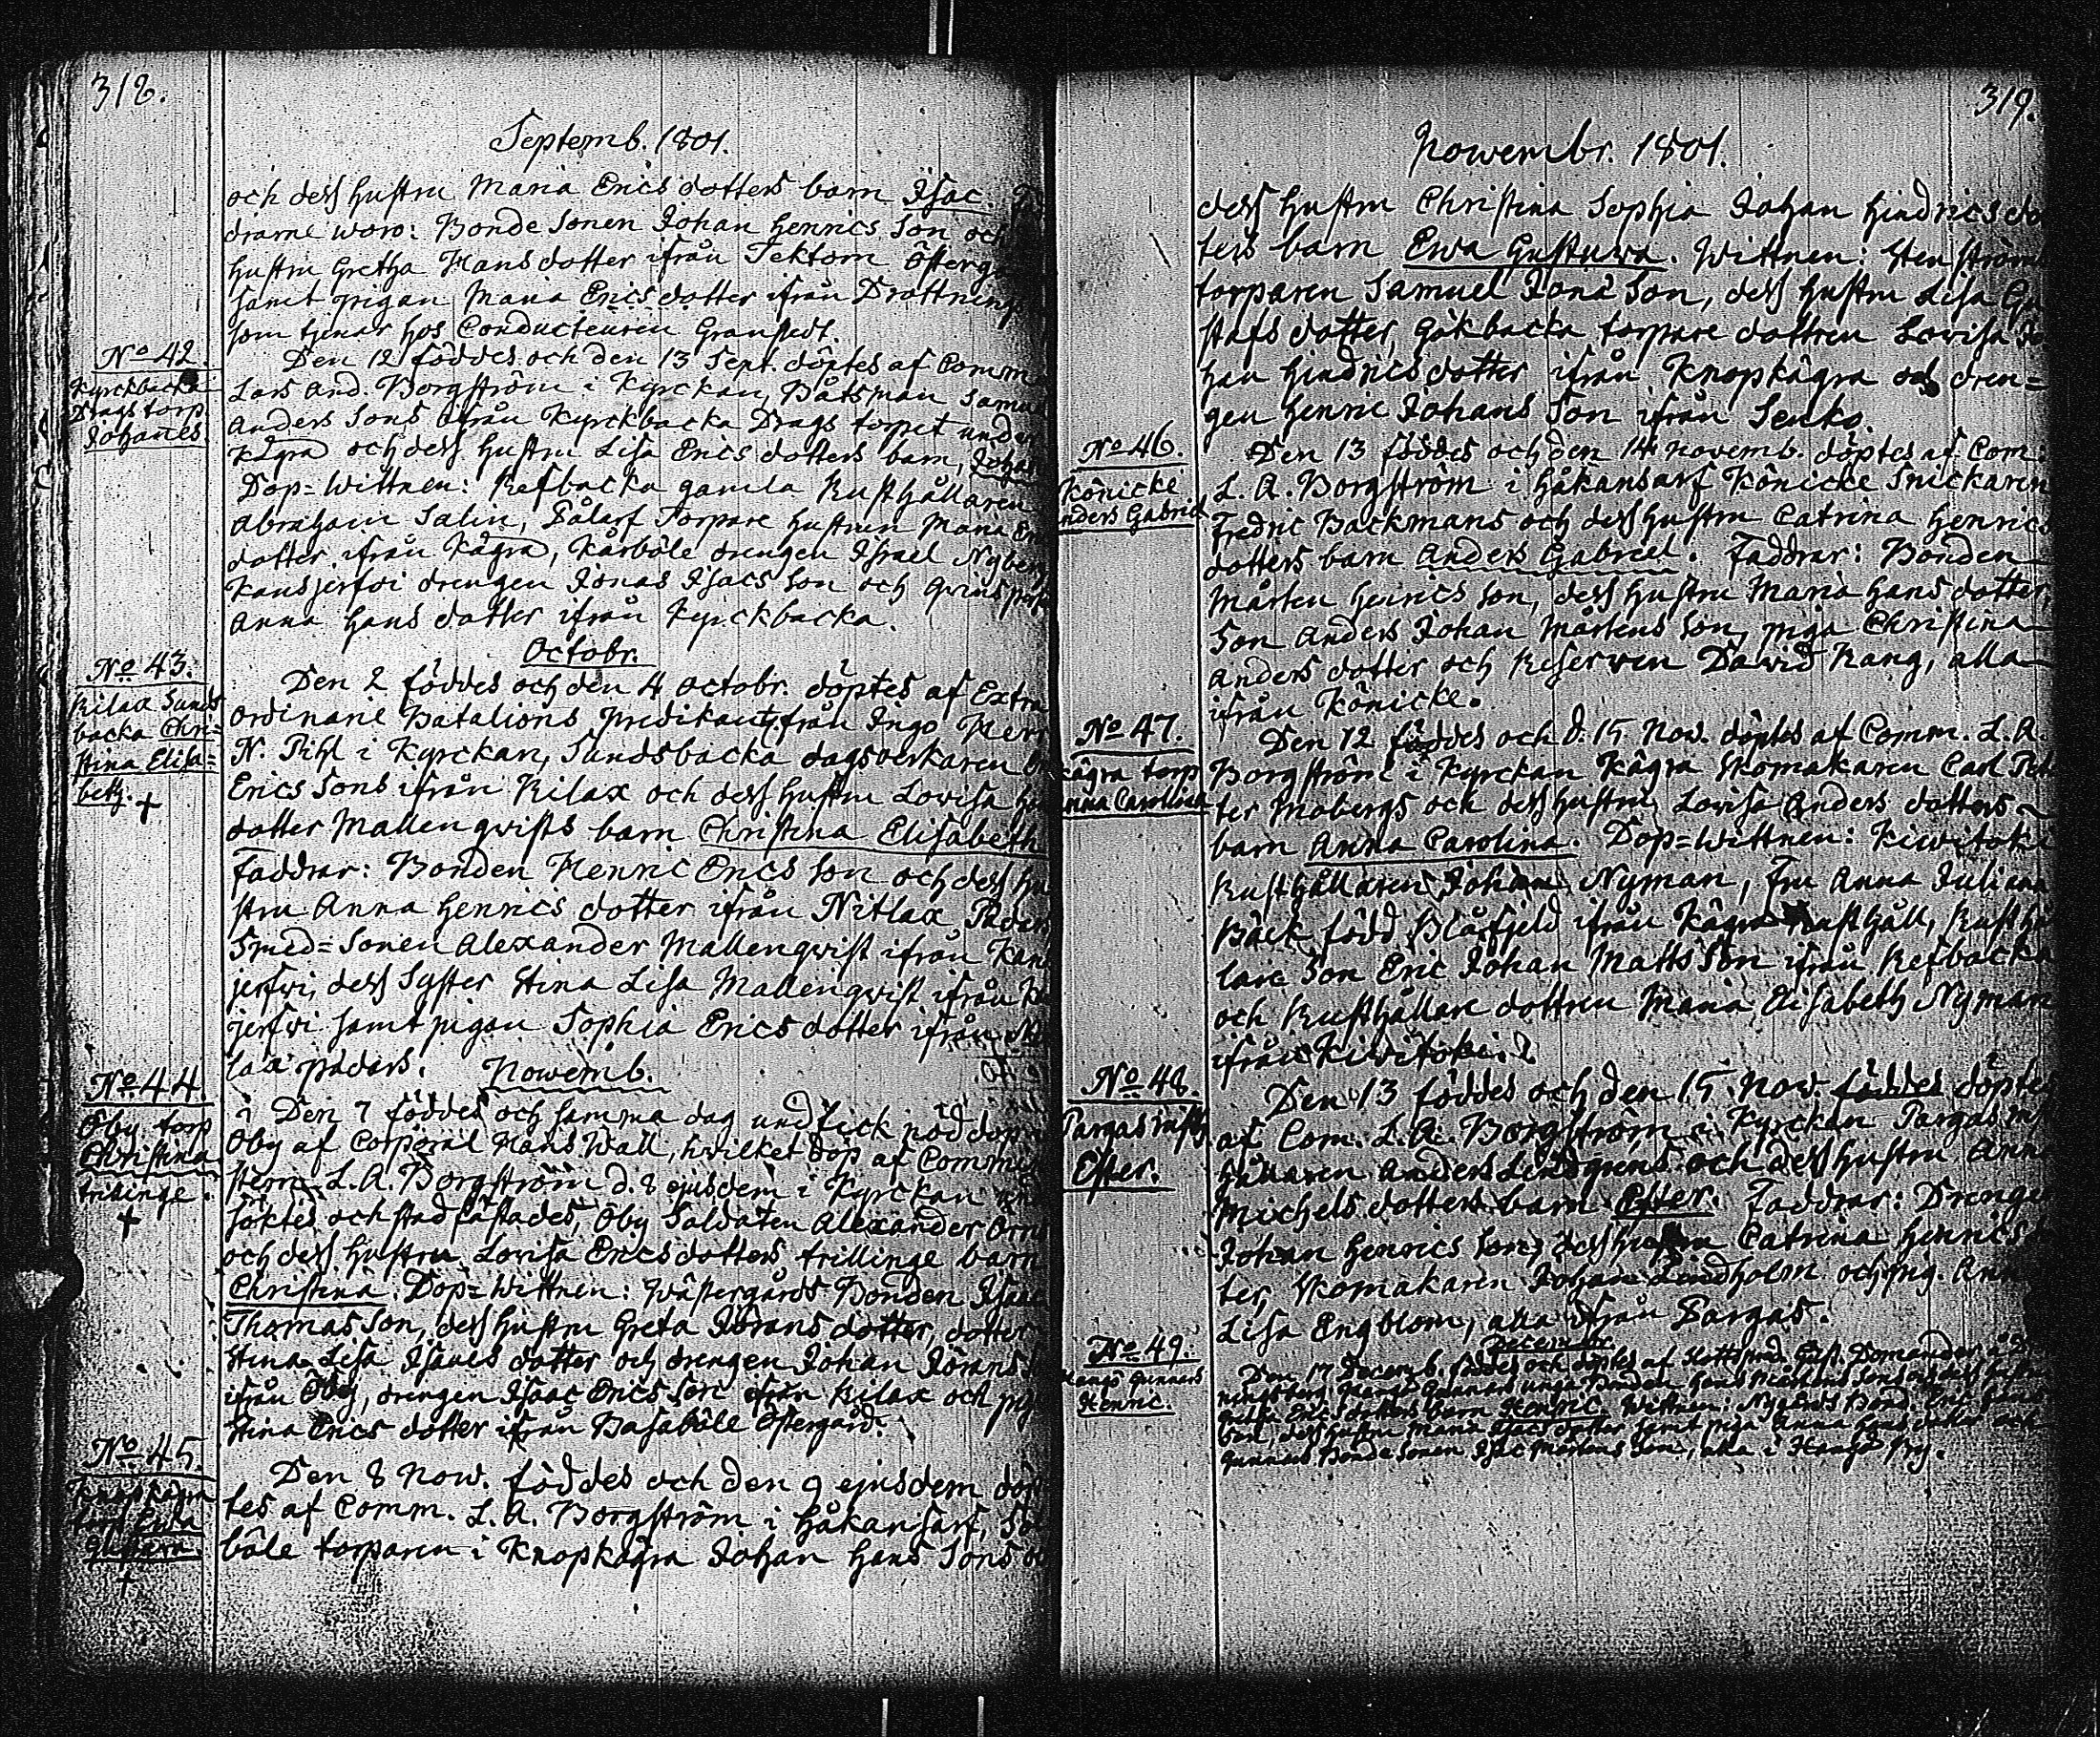 318.
Septemb. 1801.
och dess hustru Maria Ericsdotters barn Isac.
drarne woro: Bonde Sonen Johan Henrics Son och
hustru Gretha Hansdotter ifrån Tektom Österg
samt pigan Maria Ericsdotter ifrån Drottning
som tjenar hos Conducteuren Granstedt.
No 42.
Kyrckbacka
Drags torp
Johanes
Den 12 föddes och den 13 Sept. döptes af Comm
Lars And. Borgström i Kyrckan, Båtsman Samu
Anders Sons ifrån Kyrckbacka Drags torpet under
Kågra och dess hustru Lisa Erics dotters barn, Johan
Dop=Wittnen: Refbacka gamla Rusthållaren
Abraham Salin, Torpare hustrun Maria
dotter ifrån Kågra, Kårböle drengen Israel Nyberg
Kansjerfvi drengen Jonas Isacs Son och
Anna Hans dotter ifrån Kyrckbacka.
Octobr.
No 43.
Rilax Sunds
backa Chri=
stina Elisa=
beth. +
Den 2 föddes och den 4 Octobr. döptes af Extra
ordinarie Batalions predikant, från Ingo Herr
N. Pihl i Kyrckan, Sundsbacka dagsverkaren
Erics Sons ifrån Rilax och dess hustru Lovisa
dotter Mallenqwists barn Christina Elisabeth
Faddrar: Bonden Henric Erics Son och dess hu
stru Anna Henrics dotter ifrån Nitlax Padars
Smed=Sonen Alexander Mallenqwist ifrån Kans
jerfvi, dess Syster Stina Lisa Mallenqwist ifrån
jerfvi samt pigan Sophia Erics dotter ifrån
lax padars.
Nowemb.
No 44.
Öby torp
Christina
trilinge.
+
Den 7 föddes och samma dag undfick nöddop
Öby af Corporal Hans Wall, hwilket dop af Commi
stern L. A. Borgström d. 8 ejusdem i Kyrckan und
söktes och stadfästades, Öby Soldaten Alexander Örn
och dess hustru Lovisa Ericsdotters trillinge barn
Christina. Dop=Wittnen: Wästergårds Bonden Isaac
Thomas Son, dess hustru Greta Jörans dotter, dotter
Stina Lisa Isaacs dotter och drengen Johan Jörans
ifrån Öby, drengen Isaac Erics Son ifrån Rilax och pig
Stina Erics dotter ifrån Basaböle Östergård.
No 45.
Knopkågra
torp Ewa
Gustava
+
Den 8 Now. föddes och den 9 ejusdem döp
tes af Comm. L. A. Borgström i Håkansarf,
böle torparen i Knopkågra Johan Hans Sons
319.
Nowembr. 1801.
dess hustru Christina Sophia Johan Hindricsdo
ters barn Ewa Gustuwa. Wittnen: Stenström
torparen Samuel Jona Son, dess hustru Lisa Gu
stafs dotter, Gökbacka torpare dottren Lovisa Jo
han Hindricsdotter ifrån Knopkågra och dren=
gen Henric Johans Son ifrån Senko.
No 46.
Könicke
Anders Gabriel
Den 13 föddes och den 14 Novemb. döptes af Com.
L. A. Borgström i Håkansarf Könicke Snickaren
Fredric Backmans och dess hustru Catrina Henrics
dotters barn Anders Gabriel. Faddrar: Bonden
Mårten Henrics Son, dess hustru Maria Hans dotter,
Son Anders Johan Mårtens Son, piga Christina
Anders dotter och Reserven David Rang, alla
ifrån Könicke.
No 47.
Kågra torp
Anna Carolina
Den 12 föddes och d. 15 Now. döptes af Comm. L. A.
Borgström i Kyrckan Kågra Skomakaren Carl Pet
ter Mobergs och dess hustru Lovisa Anders dotters
barn Anna Carolina. Dop=Wittnen: Kiwitok
Rusthållaren Johan Nyman, Fru Anna Juliana
Bäck född Blåfjeld ifrån Kågra rusthåll, Rusthå
lare Son Eric Johan Matts Son ifrån Refbacka
och Rusthållare dottren Maria Elisabeth Nyman
ifrån Kiwitoki.
No 48.
Pargas
Ester.
Den 13 föddes och den 15 Now. föddes döptes
af Com. L. A. Borgström i Kyrckan Pargas
hållaren Anders Lindgrens och dess hustru Anna
Michels dotters barn Ester. Faddrar: Drengen
Johan Henrics Son, dess hustru Catrina Henrics
ter, Skomakaren Johan Lindholm och pig. Ann
Lisa Engblom, alla ifrån Pargas.
December
No 49.
Hangö Gunnars
Henric.
Den 17 Decemb. föddes och döptes af Slottspred. Gust. Domander å
Hangö Gunnars unga Bonden Hans Mårtens Sons och dess hustru
Erics dotters barn Henric. Wittnen: Nygårds Bond. Eric Hans
Son, dess hustru Maria Isacs dotter samt piga Anna Hans dotter och
Gunnars Bonde Sonen Isac Mårtens Son, alla i Hangö by.